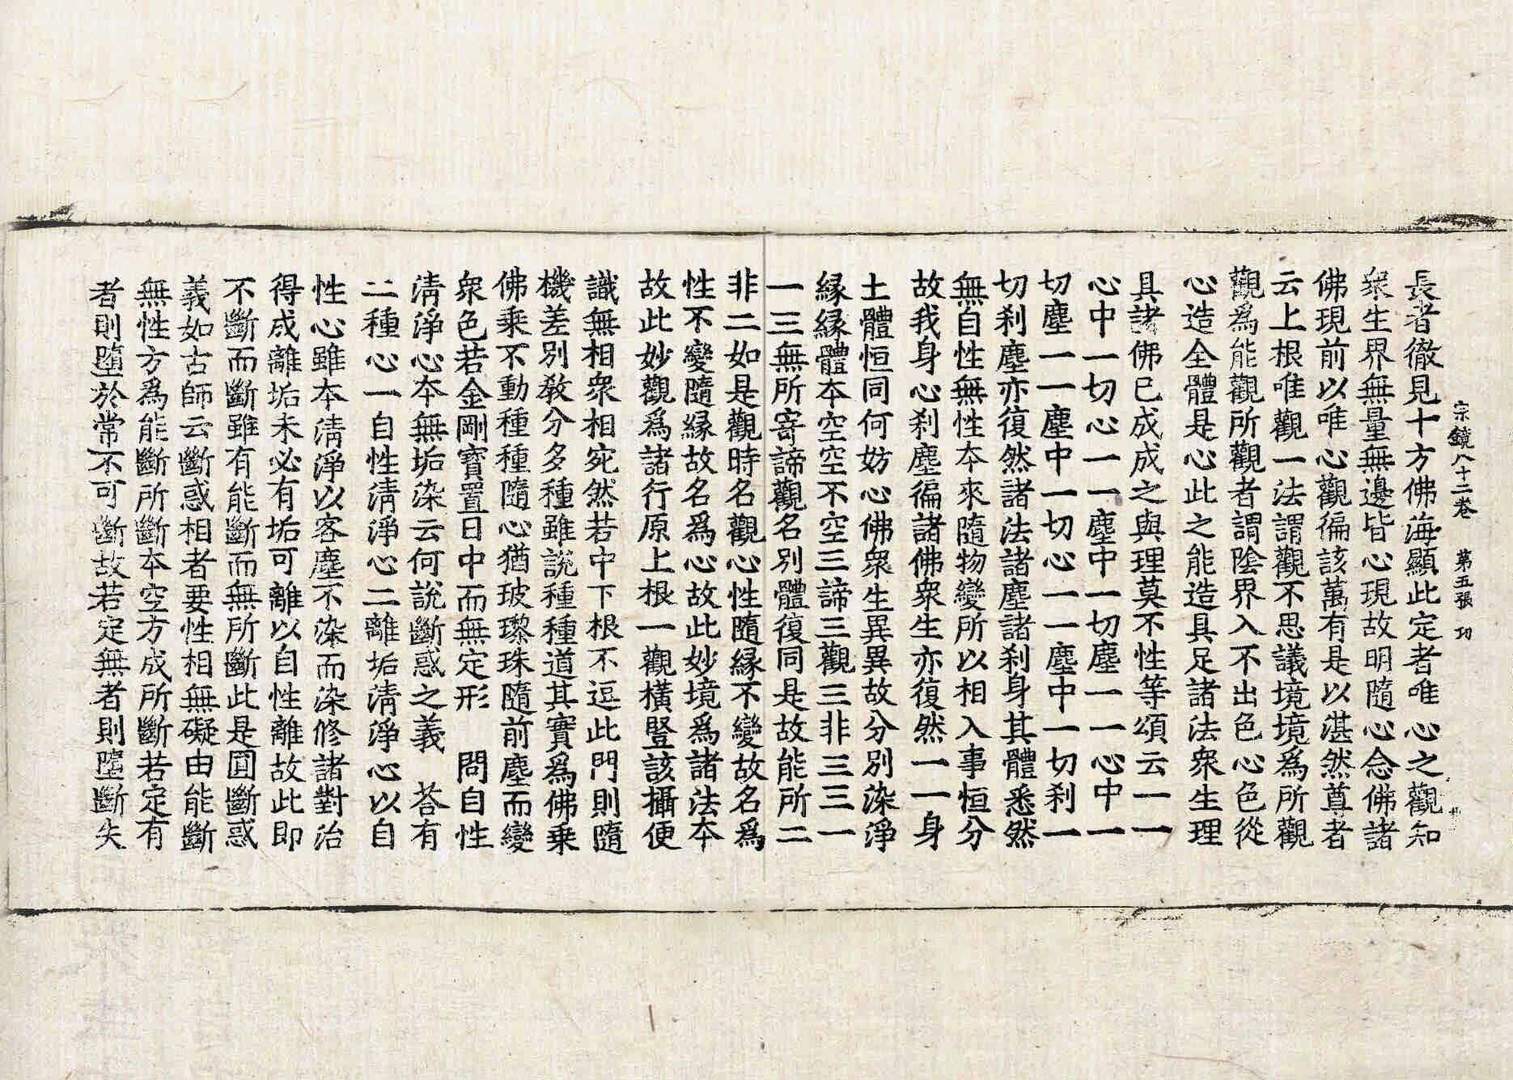 宗鏡八十二卷　第五張　功
長者徹見十方佛海顯此定者唯心之觀知
衆生界無量無邊皆心現故明隨心念佛諸
佛現前以唯心觀徧該萬有是以湛然尊者
云上根唯觀一法謂觀不思議境境爲所觀
觀爲能觀所觀者謂陰界入不出色心色從
心造全體是心此之能造具足諸法衆生理
具諸佛已成成之與理莫不性等頌云一一
心中一切心一一塵中一切塵一一心中一
切塵一一塵中一切心一一塵中一切刹一
切刹塵亦復然諸法諸塵諸刹身其體悉然
無自性無性本來隨物變所以相入事恒分
故我身心刹塵徧諸佛衆生亦復然一一身
土體恒同何妨心佛衆生異異故分別染淨
緣緣體本空空不空三諦三觀三非三三一
一三無所寄諦觀名別體復同是故能所二
非二如是觀時名觀心性隨緣不變故名爲
性不變隨緣故名爲心故此妙境爲諸法本
故此妙觀爲諸行原上根一觀橫豎該攝便
識無相衆相宛然若中下根不逗此門則隨
機差別教分多種雖說種種道其實爲佛乘
佛乘不動種種隨心猶玻瓈珠隨前塵而變
衆色若金剛寶置日中而無定形　問自性
清淨心本無垢染云何說斷惑之義　荅有
二種心一自性清淨心二離垢清淨心以自
性心雖本清淨以客塵不染而染修諸對治
得成離垢未必有垢可離以自性離故此即
不斷而斷雖有能斷而無所斷此是圓斷惑
義如古師云斷惑相者要性相無礙由能斷
無性方爲能斷所斷本空方成所斷若定有
者則墮於常不可斷故若定無者則墮斷失